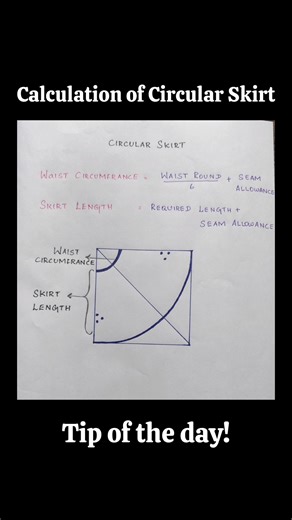 Calculation of Circular Skirt
CIRCULAR SKIRT
WAIST CIRCUMERANCE = WAIST ROUND + SEAM
6 ALLOWANCE
SKIRT LENGTH : REQUIRED LENGTH +
SEAM ALLOWANCE
WAIST
CIRCUMERANCE
SKIRT
LENGTH
Tip of the day!